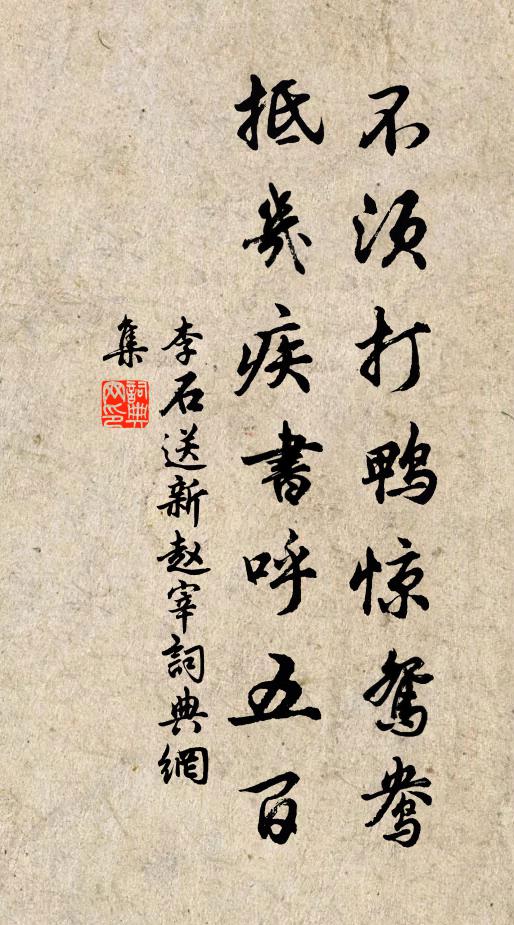 不须打鸭惊鸳鸯
抵几疾书呼五百
李石送新赵宰詞典網
集
詞典
网印